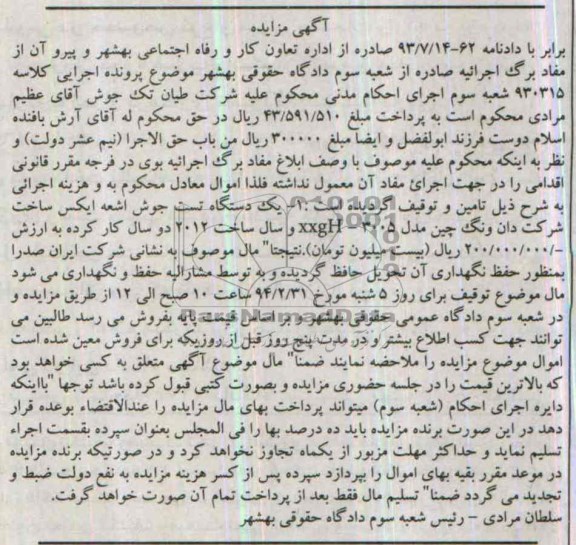 آگهی مزایده
برابر با دادنامه ۶۲-۹۳/۷/۱۴ صادره از اداره تعاون کار و رفاه اجتماعی بهشهر و پیرو آن از
مفاد برگ اجرائیه صادره از شعبه سوم دادگاه حقوقی بهشهر موضوع پرونده اجرایی کلاسه
۹۳۰۳۱۵ شعبه سوم اجرای احکام مدنی محکوم علیه شرکت طیان تک جوش آقای عظیم
مرادی محکوم است به پرداخت مبلغ ۴۳/۵۹۱/۵۱۰ ریال در حق محکوم له آقای آرش بافنده
اسلام دوست فرزند ابولفضل و ایضا مبلغ ۳۰۰۰۰۰ ریال من باب حق الاجرا (نیم عشر دولت) و
نظر به اینکه محکوم علیه موصوف با وصف ابلاغ مفاد برگ اجرائیه بوی در فرجه مقرر قانونی
اقدامی را در جهت اجرائ مفاد آن معمول نداشته فلذا اموال معادل محکوم به و هزینه اجرائی
به شرح ذیل تامین و توقیف گردیده است :۱- یک دستگاه تست جوش اشعه ایکس ساخت
شرکت دان ونگ چین مدل ۲۰۰۵- xxgH و سال ساخت ۲۰۱۲ دو سال کار کرده به ارزش
-/۲۰۰/۰۰۰/۰۰۰ ریال (بیست میلیون تومان).نتیجتا" مال موصوف به نشانی شرکت ایران صدرا
بمنظور حفظ نگهداری آن تحویل حافظ گردیده و به توسط مشارالیه حفظ و نگهداری می شود
مال موضوع توقیف برای روز ۵ شنبه مورخ ۹۴/۲/۳۱ ساعت ۱۰ صبح الی ۱۲ از طریق مزایده و
در شعبه سوم دادگاه عمومی حقوقی بهشهر و براساس قیمت پایه بفروش می رسد طالبین می
توانند جهت کسب اطلاع بیشتر و در مدت پنج روز قبل از روزیکه برای فروش معین شده است
اموال موضوع مزایده را ملاحضه نمایند ضمنا" مال موضوع آگهی متعلق به کسی خواهد بود
که بالاترین قیمت را در جلسه حضوری مزایده و بصورت کتبی قبول کرده باشد توجها "بااینکه
دایره اجرای احکام (شعبه سوم) میتواند پرداخت بهای مال مزایده را عندالاقتضاء بوعده قرار
دهد در این صورت برنده مزایده باید ده درصد بها را فی المجلس بعنوان سپرده بقسمت اجراء
تسلیم نماید و حداکثر مهلت مزبور از یکماه تجاوز نخواهد کرد و در صورتیکه برنده مزایده
در موعد مقرر بقیه بهای اموال را بپردازد سپرده پس از کسر هزینه مزایده به نفع دولت ضبط و
تجدید می گردد ضمنا" تسلیم مال فقط بعد از پرداخت تمام آن صورت خواهد گرفت.
سلطان مرادی - رئیس شعبه سوم دادگاه حقوقی بهشهر